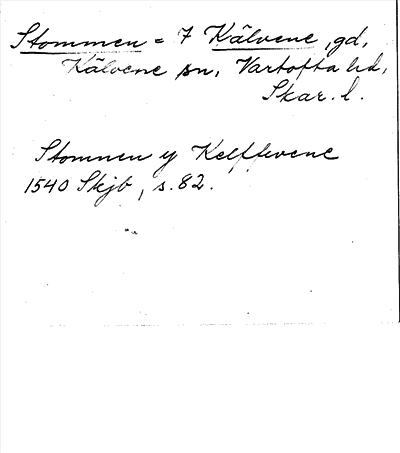 Stommen = 7 Kälvene, gd,
Kälvene sn, Vartofta hd,
Skar. l.
Stommen y Kelffwene
1540 Skjb, s. 82.